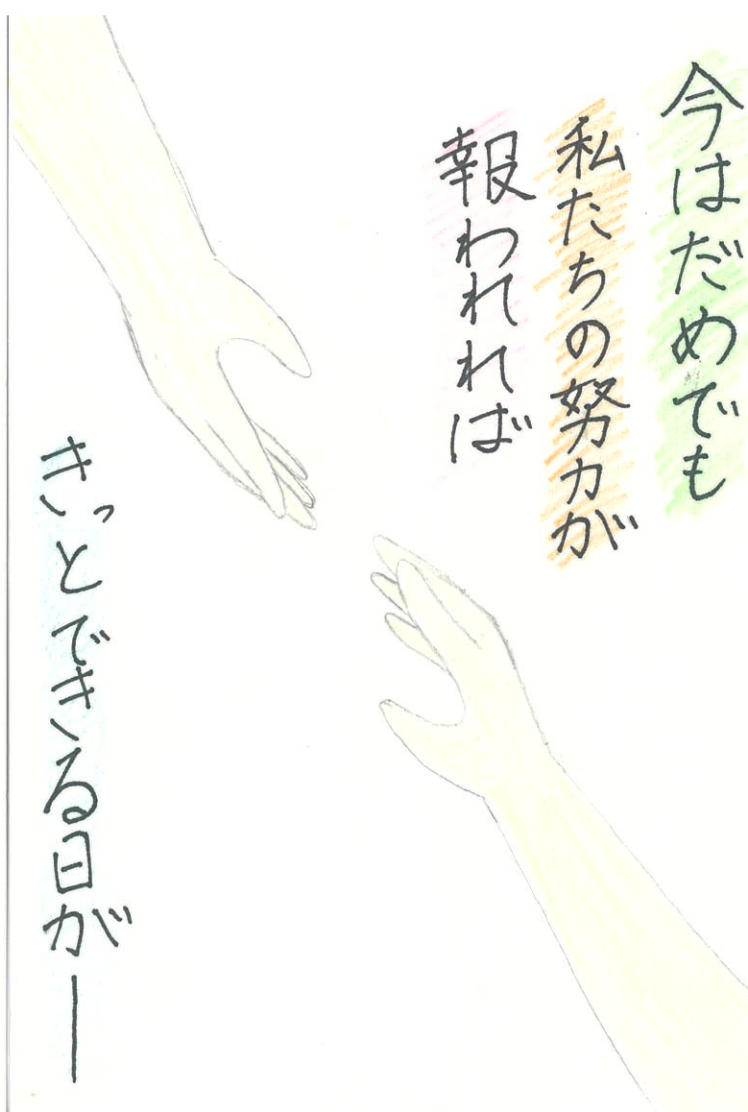 今はだめでも
私たちの努力が
報われれば
きっとできる日が―